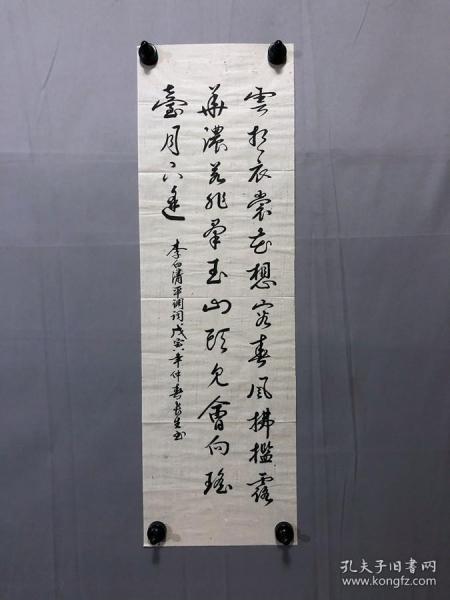 雲想衣裳花想容春風拂檻露
華濃若非羣玉山頭見會向瑤
臺月下逢
李白清平调词戊寅年仲春書
孔夫子旧书网
www.kongfz.com